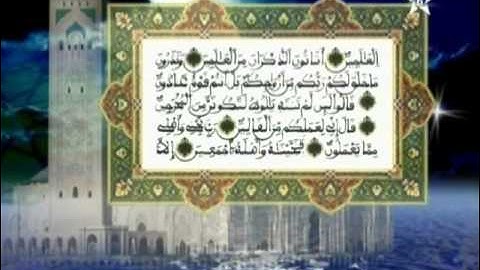 العالمين أتاتون الذكران من العالمين وتذرون
ما خلق لكم ربكم من أزواجكم بل أنتم قوم عادون
قالوا لئن لم تنته يلوط لتكونن من المخرجين
قال إني لعملكم من القالين رب نجني وأهلي
مما يعملون فنجينه وأهله أجمعين إلا